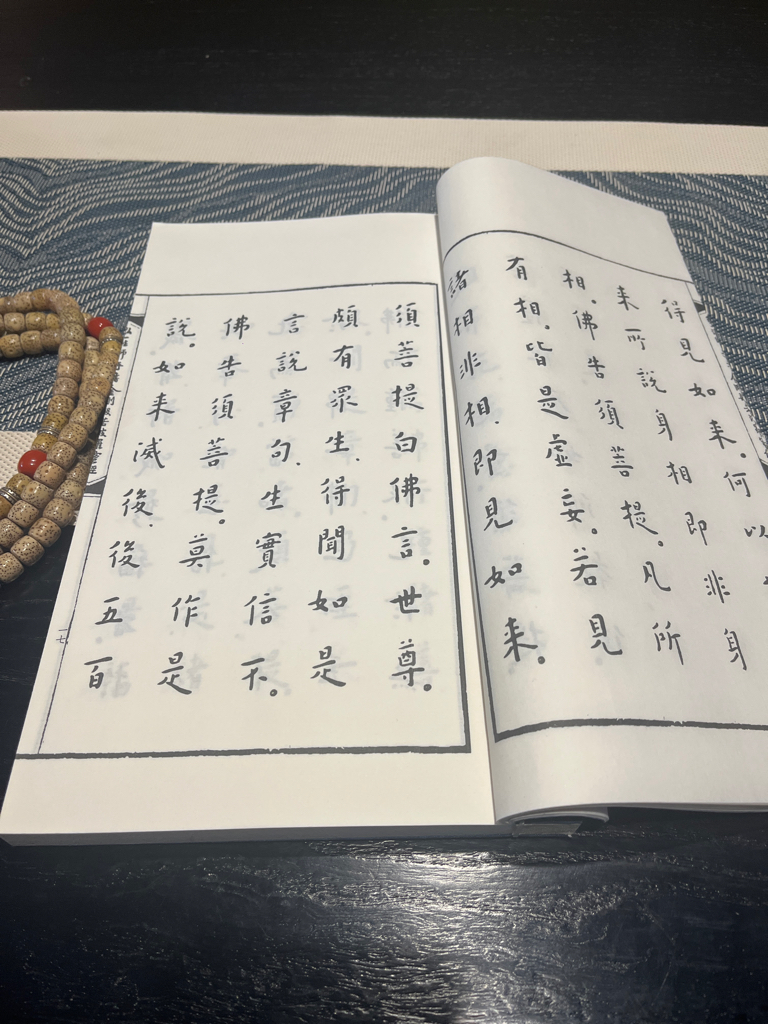 得見如来。何以
来所說身相即非身
相。佛告須菩提。凡所
有相。皆是虛妄。若見
諸相非相。即見如来。
須菩提白佛言。世尊。
頗有眾生、得聞如是
言說章句、生實信不。
佛告須菩提。莫作是
說。如来滅後、後五百
一七